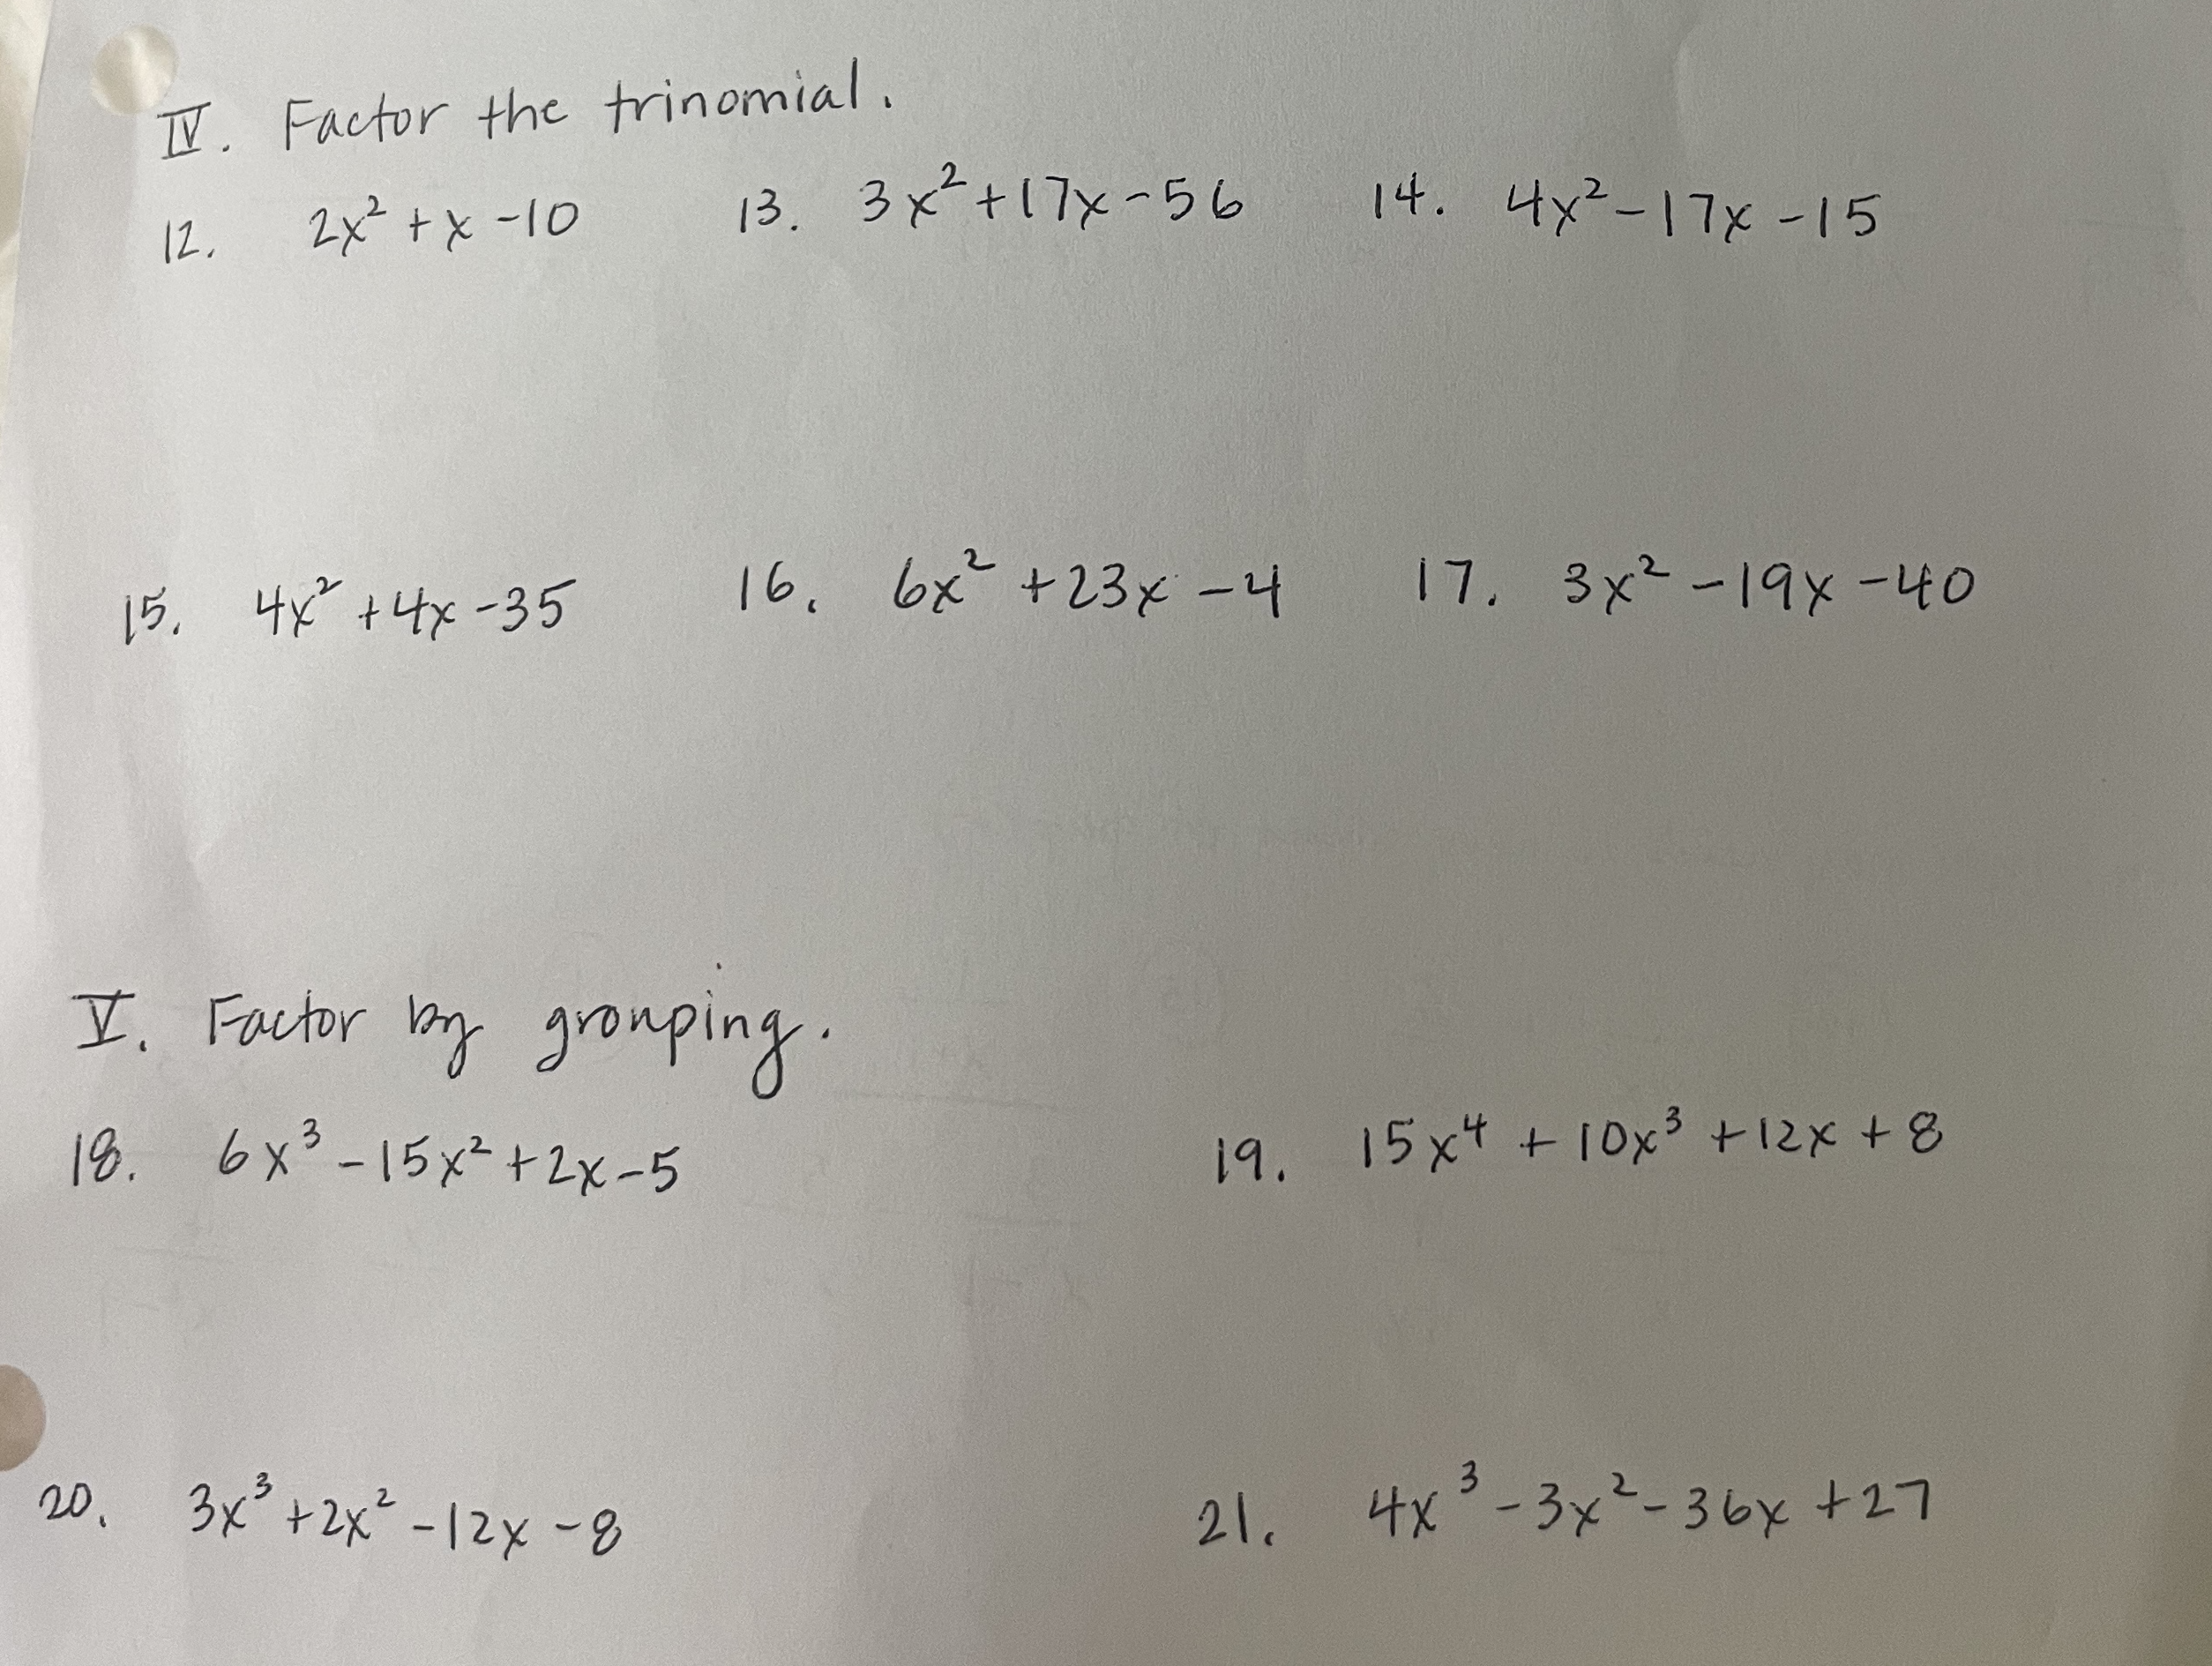 IV. Factor the trinomial.
12. 2x² + x - 10 13. 3x² + 17x - 56 14. 4x² - 17x - 15
15. 4x² + 4x - 35 16. 6x² + 23x - 4 17. 3x² - 19x - 40
V. Factor by grouping.
18. 6x³ - 15x² + 2x - 5 19. 15x⁴ + 10x³ + 12x + 8
20. 3x³ + 2x² - 12x - 8 21. 4x³ - 3x² - 36x + 27